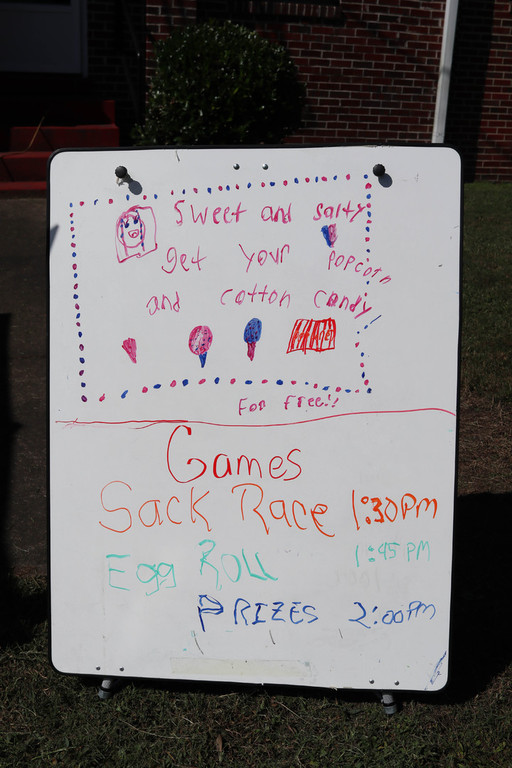 Sweet and salty
get your popcorn
and cotton candy!
For Free!!
Games
Sack Race 1:30PM
Egg Roll 1:45 PM
PRIZES 2:00PM